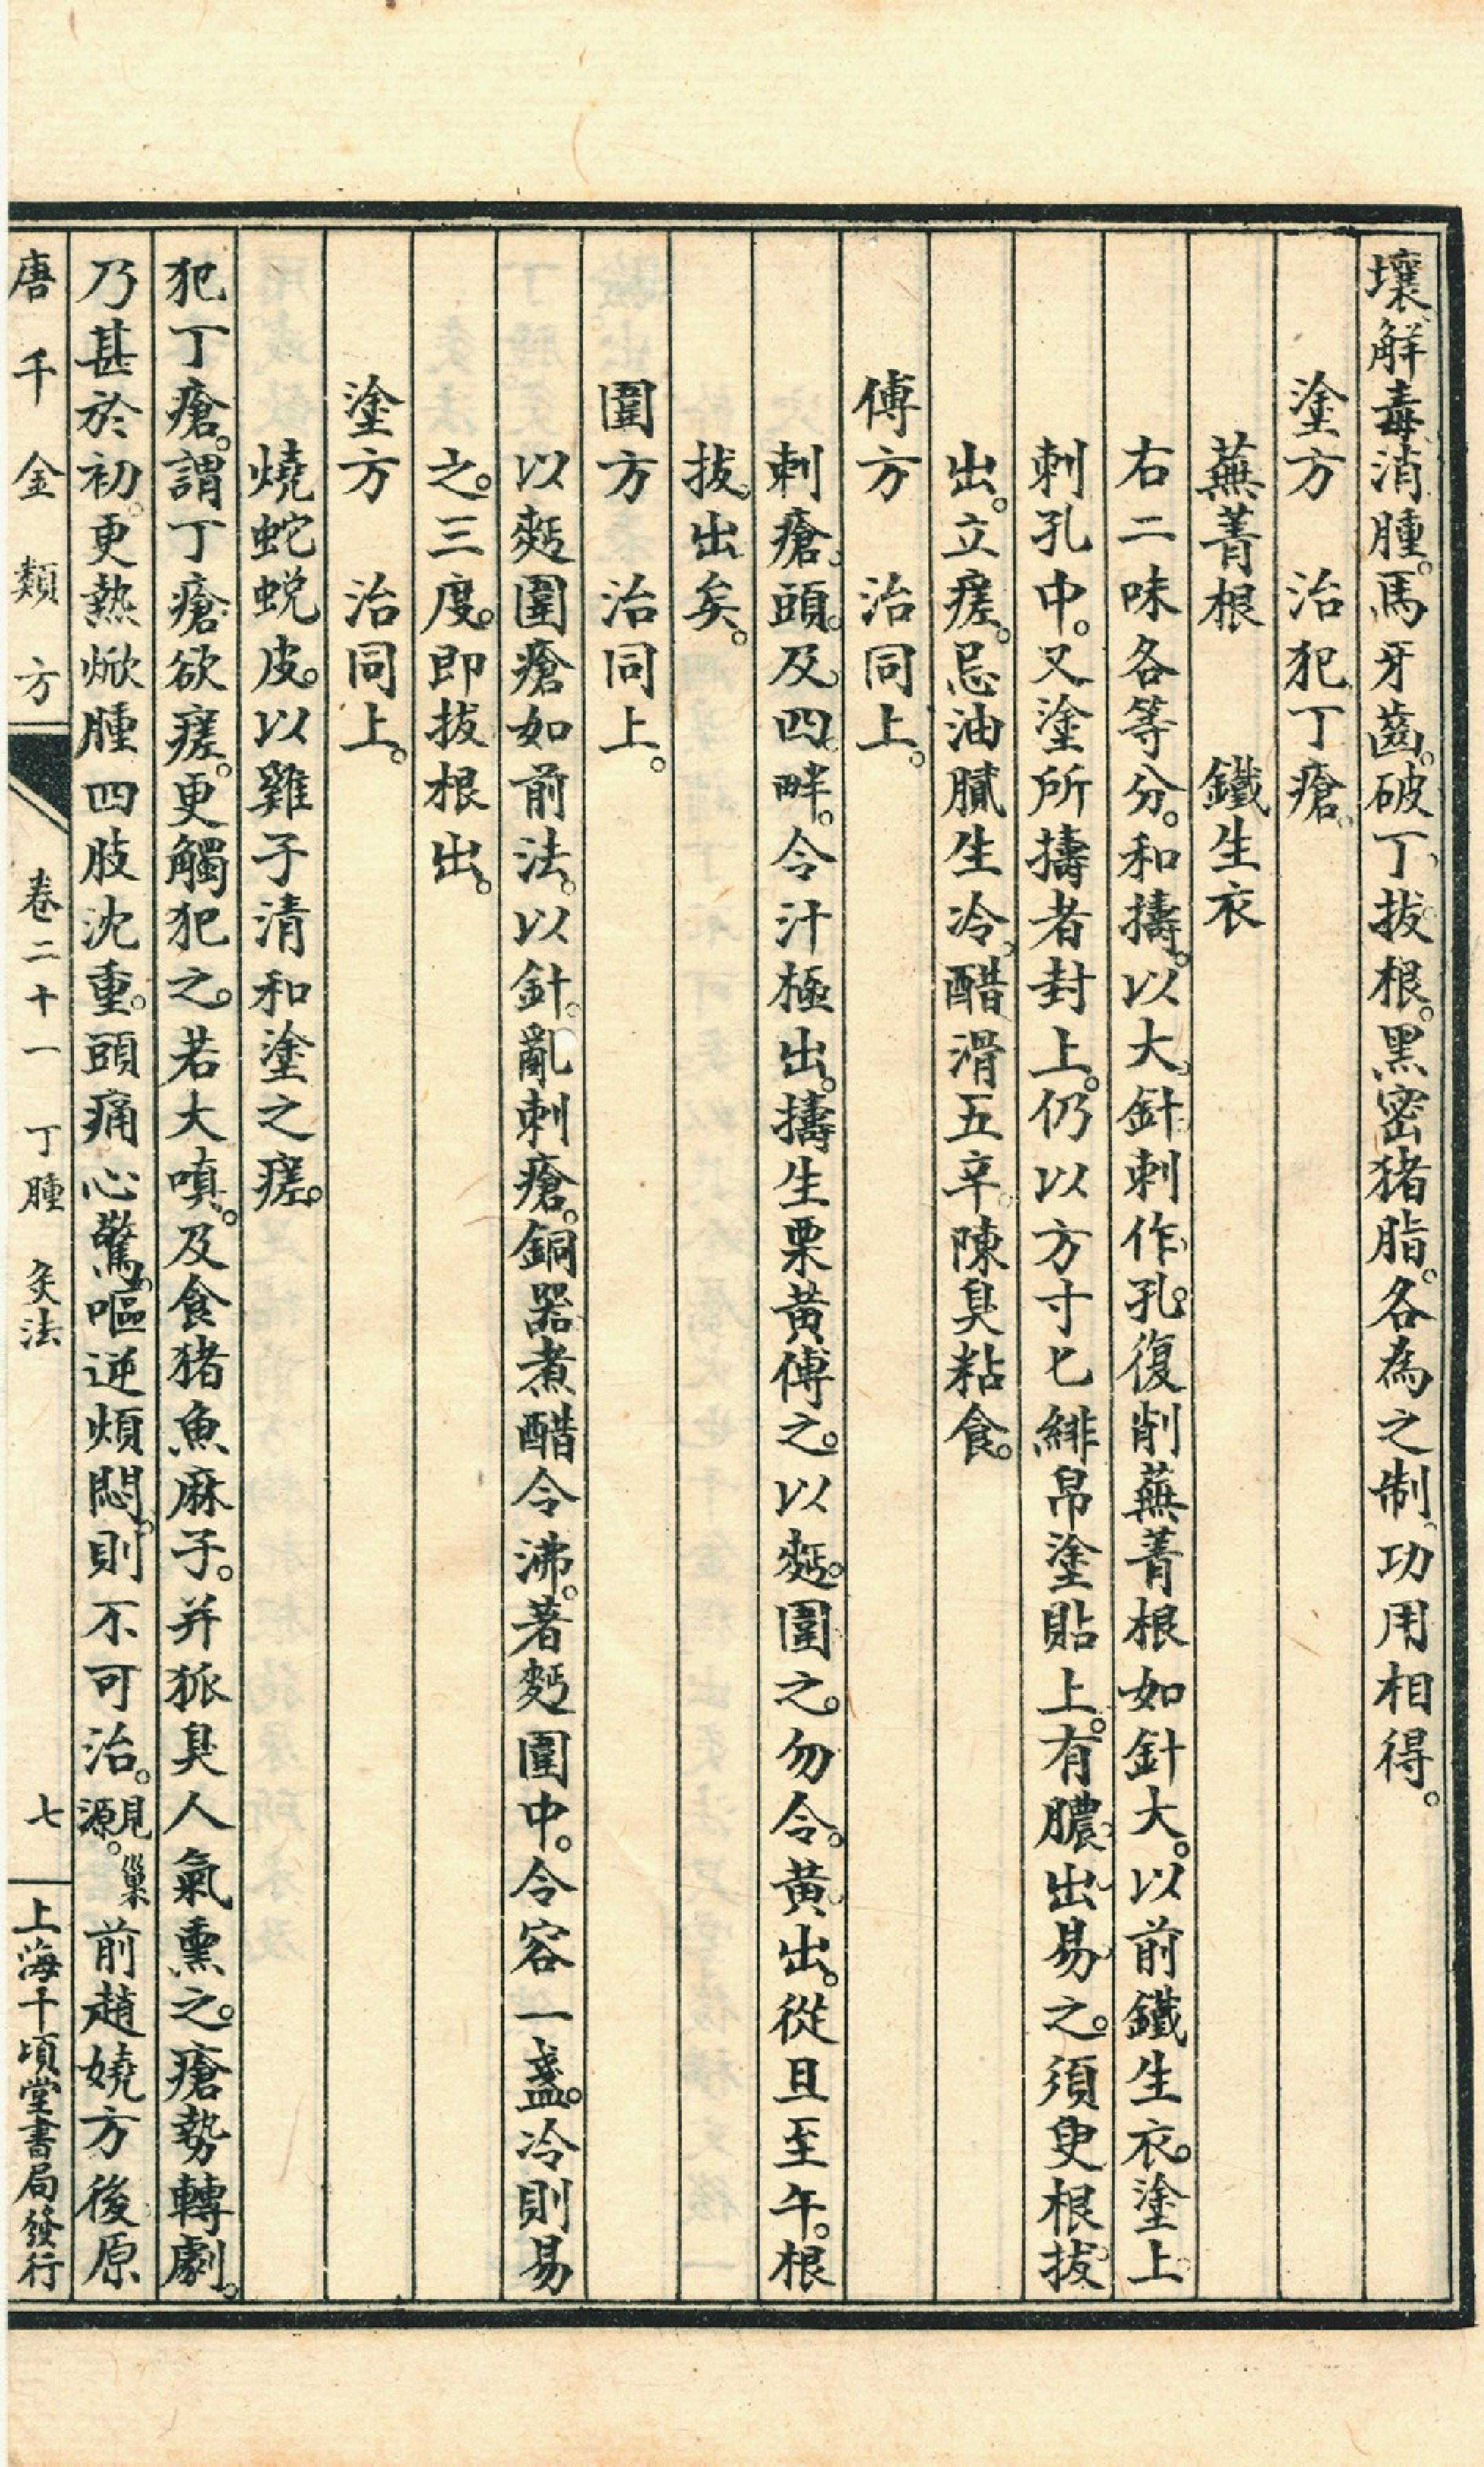 壞、解毒、消腫。馬牙齒。破丁、拔根。黑密猪脂。各為之制、功用相得。
塗方　治犯丁瘡。
蕪菁根　　鐵生衣
右二味各等分。和擣。以大針刺作孔。復削蕪菁根如針大。以前鐵生衣。塗上
刺孔中。又塗所擣者封上。仍以方寸匕緋帛塗貼上。有膿出易之。須臾根拔
出。立瘥。忌油膩生冷、醋滑五辛、陳臭粘食。
傅方　治同上。
刺瘡頭。及四畔。令汁極出。擣生栗黃傅之。以麪。圍之。勿令。黃出。從旦至午。根
拔出矣。
圍方　治同上。
以麪圍瘡如前法。以針。亂刺瘡。銅器煮醋令沸。著麪圍中。令容一盞。冷則易
之。三度。即拔根出。
塗方　治同上。
燒蛇蛻皮。以雞子清和塗之瘥。
犯丁瘡。謂丁瘡欲瘥。更觸犯之。若大嗔。及食猪魚麻子。并狐臭人氣熏之。瘡勢轉劇。
乃甚於初。更熱焮腫四肢沈重。頭痛心驚。嘔逆煩悶。則不可治。見巢源。前趙嬈方後原
唐千金類方　卷二十一　丁腫　灸法　七　上海千頃堂書局發行